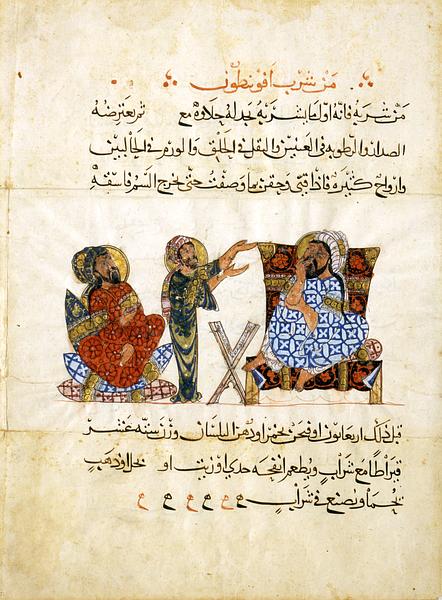 من شرب اقونيطون
من شربه فانه اول ما يشربه يجد له حلاوه مع ثم يعترضه
الصداع والرطوبه في العينين والثقل في الحلق والورم في الحالبين
وارواح كثيرة فاذا قيئ وحقن بما وصفت حتى يخرج السم فاسقه
قبل ذلك او فيجن بخمر او دهن البلسان وزن ستة عشر
قيراطا مع شراب ويطعم انفحه جدي او زيت او خل او ذهب
يحما ويصنع في شراب